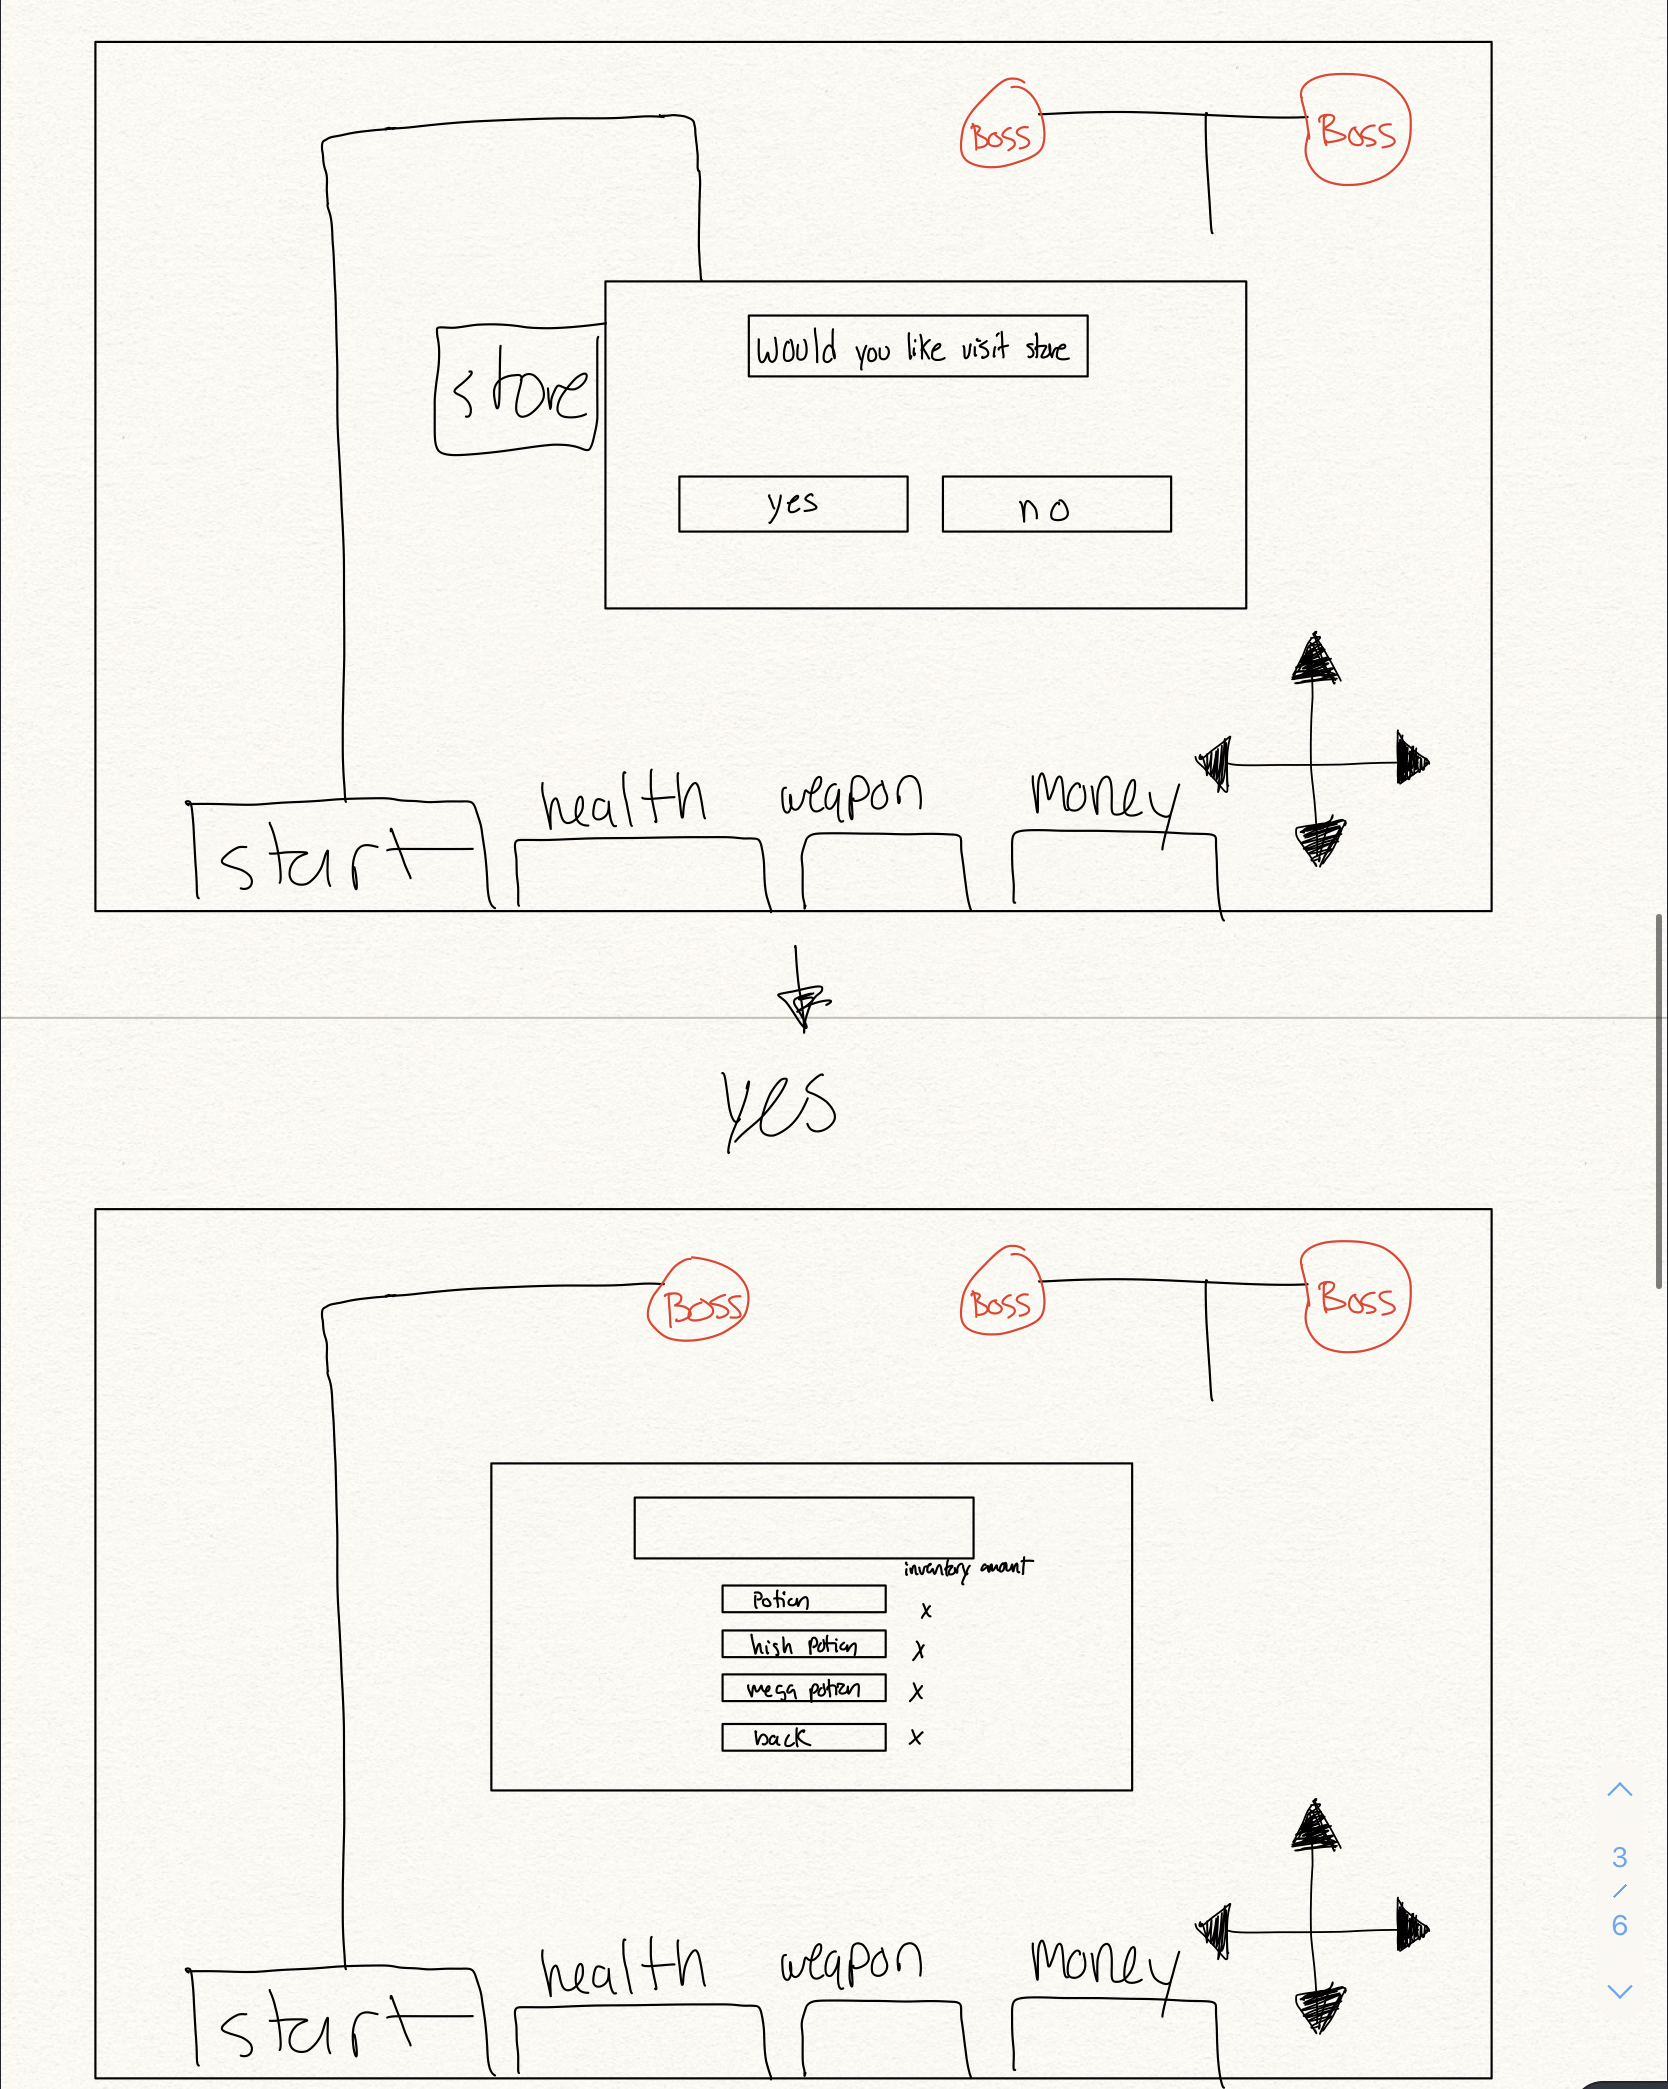 Boss
Boss
Would you like visit store
store
yes
no
health
weapon
money
start
yes
Boss
Boss
Boss
inventory amount
Potion
x
high potion
x
mega potion
x
back
x
health
weapon
money
start
3
/
6